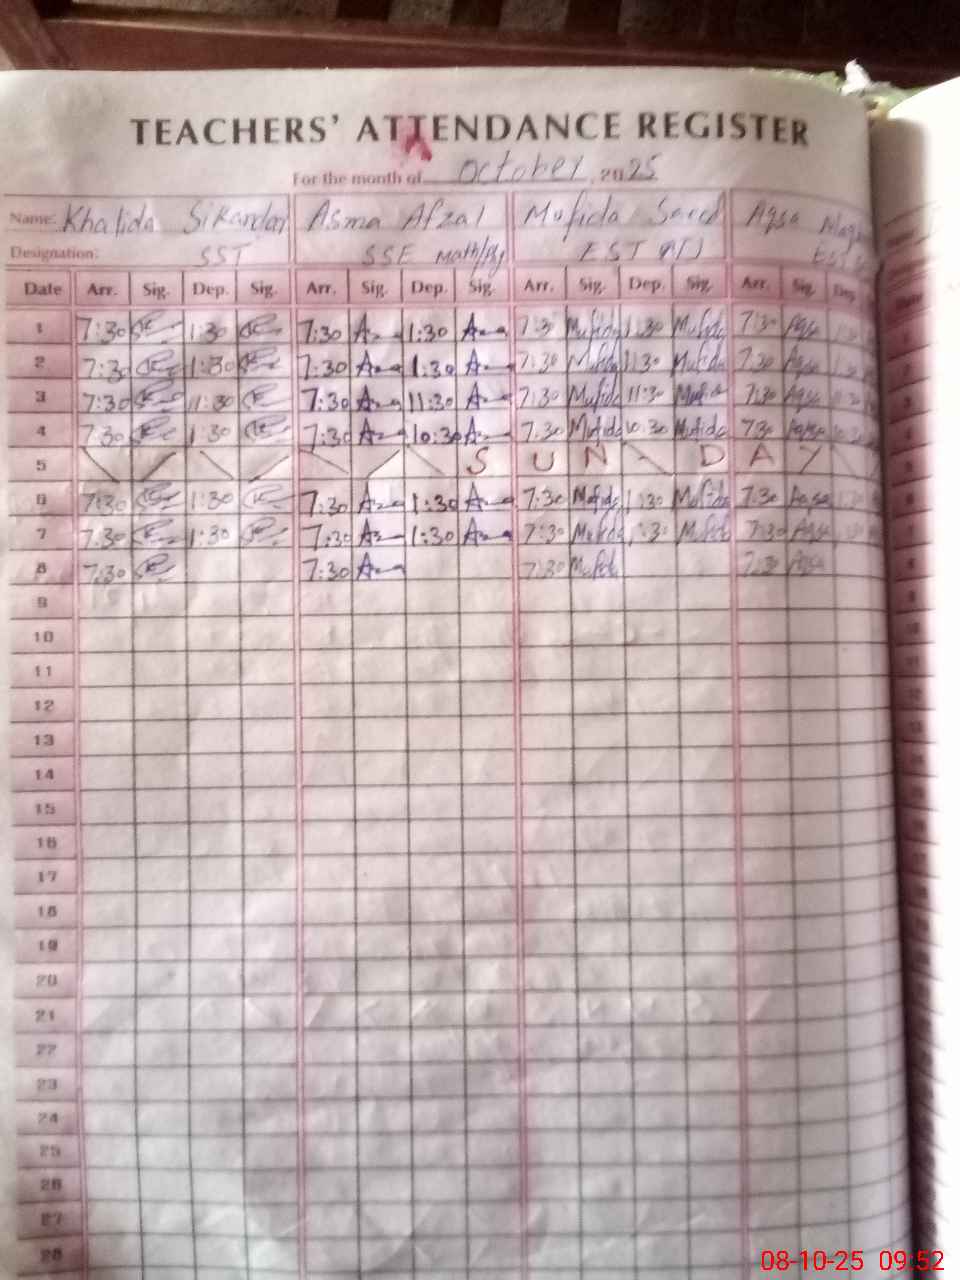 TEACHERS' ATTENDANCE REGISTER
For the month of October, 2025
Name: Khalida Sikandar Asma Afzal Mufida Saeed Aqsa
Designation: SST SSE Math/Phy EST
Date Arr. Sig. Dep. Sig. Arr. Sig. Dep. Sig. Arr. Sig. Dep. Sig. Arr. Sig. Dep.
1 7:30 1:30 7:30 1:30 7:30 Mufida 1:30 Mufida 7:30 Aqsa
2 7:30 1:30 7:30 1:30 7:30 Mufida 11:30 Mufida 7:30 Aqsa
3 7:30 11:30 7:30 11:30 7:30 Mufida 11:30 Mufida 7:30 Aqsa
4 7:30 1:30 7:30 10:30 7:30 Mufida 10:30 Mufida 7:30 Aqsa
5 S U N - D A Y
6 7:30 1:30 7:30 1:30 7:30 Mufida 1:30 Mufida 7:30 Aqsa
7 7:30 1:30 7:30 1:30 7:30 Mufida 1:30 Mufida 7:30 Aqsa
8 7:30 7:30 7:30 Mufida 7:30 Aqsa
9
10
11
12
13
14
15
16
17
18
19
20
21
22
23
24
25
26
27
28
08-10-25 09:52